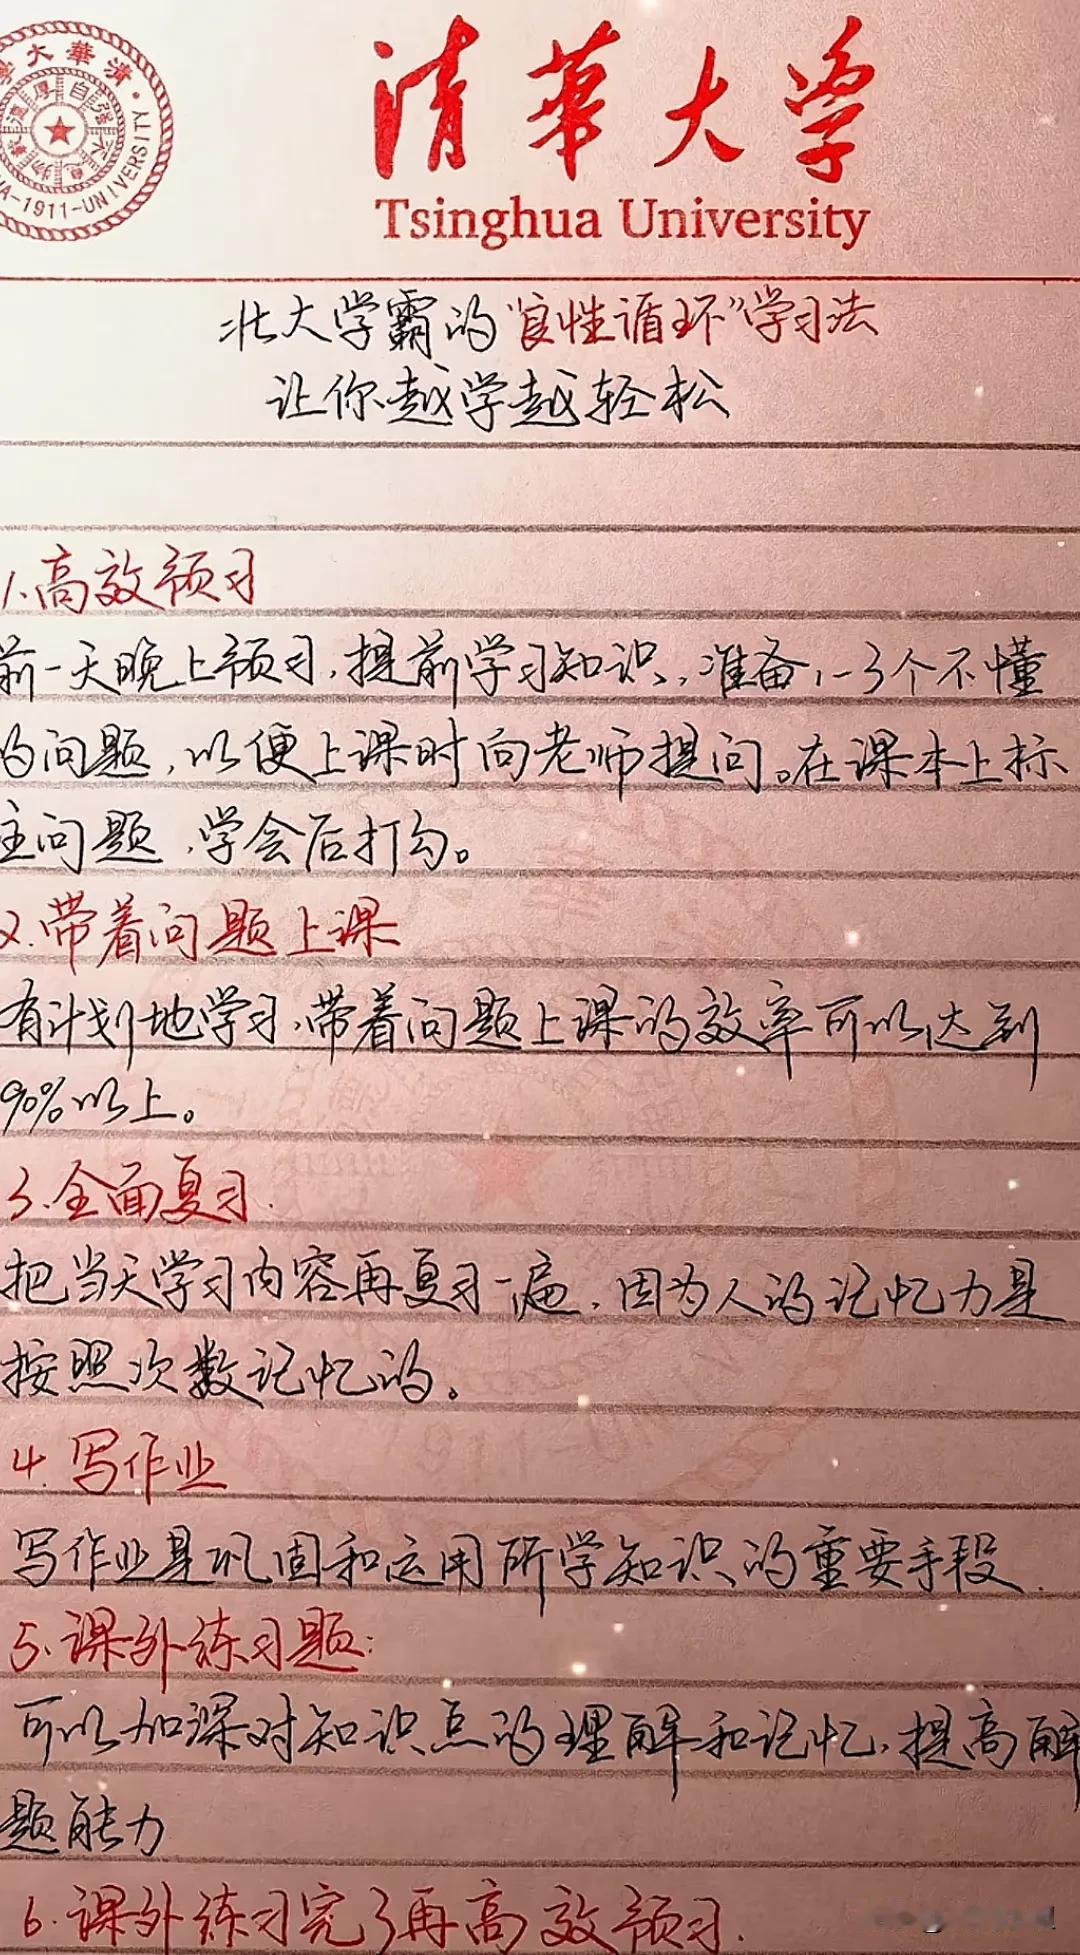 清華大學
自强不息
厚德載物
NA-1911-UNIVERSITY
清華大学
Tsinghua University
北大学霸的“良性循环”学习法
让你越学越轻松
1.高效预习
前一天晚上预习,提前学习知识,准备1-3个不懂
的问题,以便上课时向老师提问。在课本上标
注问题,学会后打勾。
2.带着问题上课
有计划地学习,带着问题上课的效率可以达到
90%以上。
3.全面复习.
把当天学习内容再复习一遍,因为人的记忆力是
按照次数记忆的。
4.写作业
写作业是巩固和运用所学知识的重要手段.
5.课外练习题:
可以加深对知识点的理解和记忆,提高解
题能力
6.课外练习完了再高效预习.